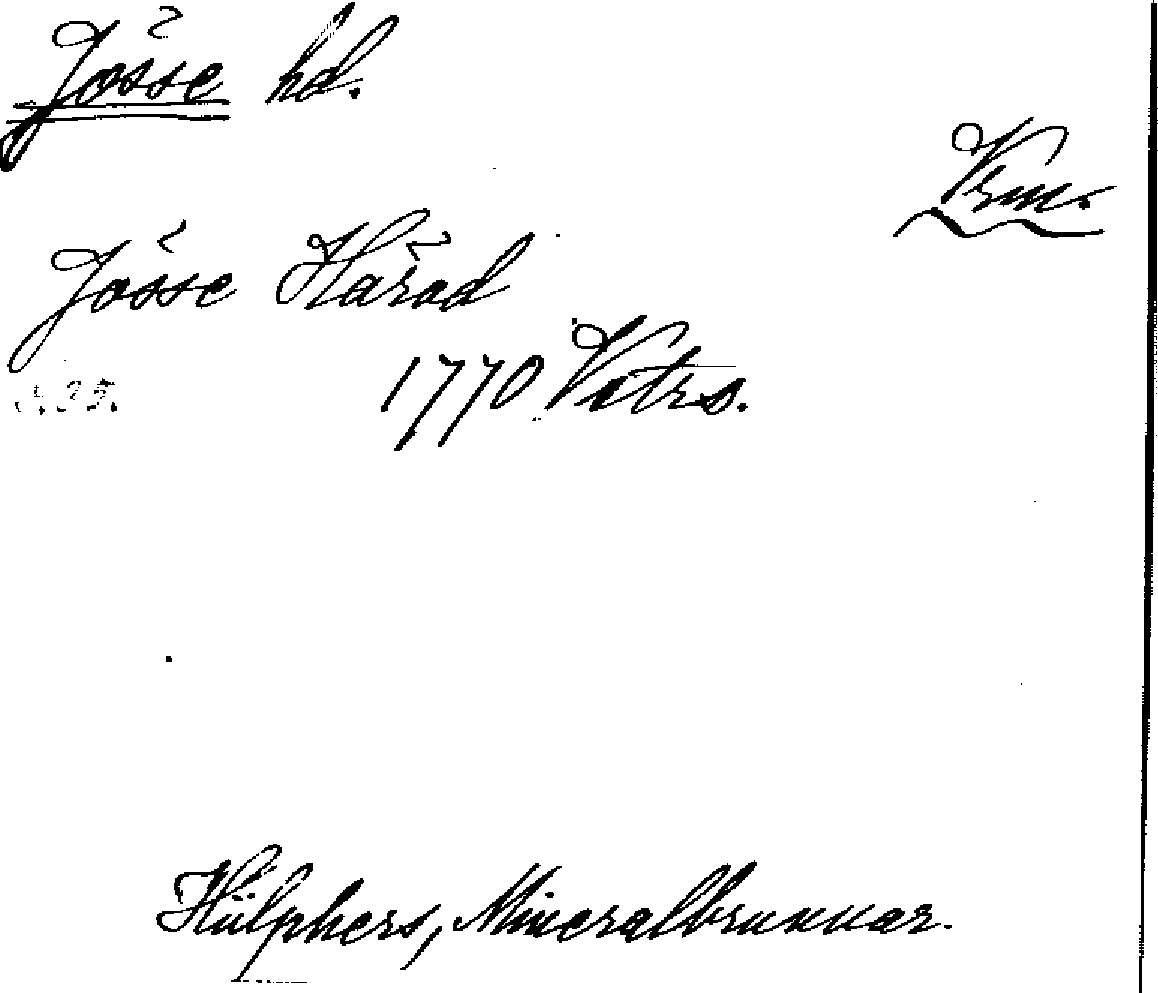 Jösse hd.
Vrm.
Jösse Härad
1770 Vattrs.
Hülphers, Mineralbrunnar.